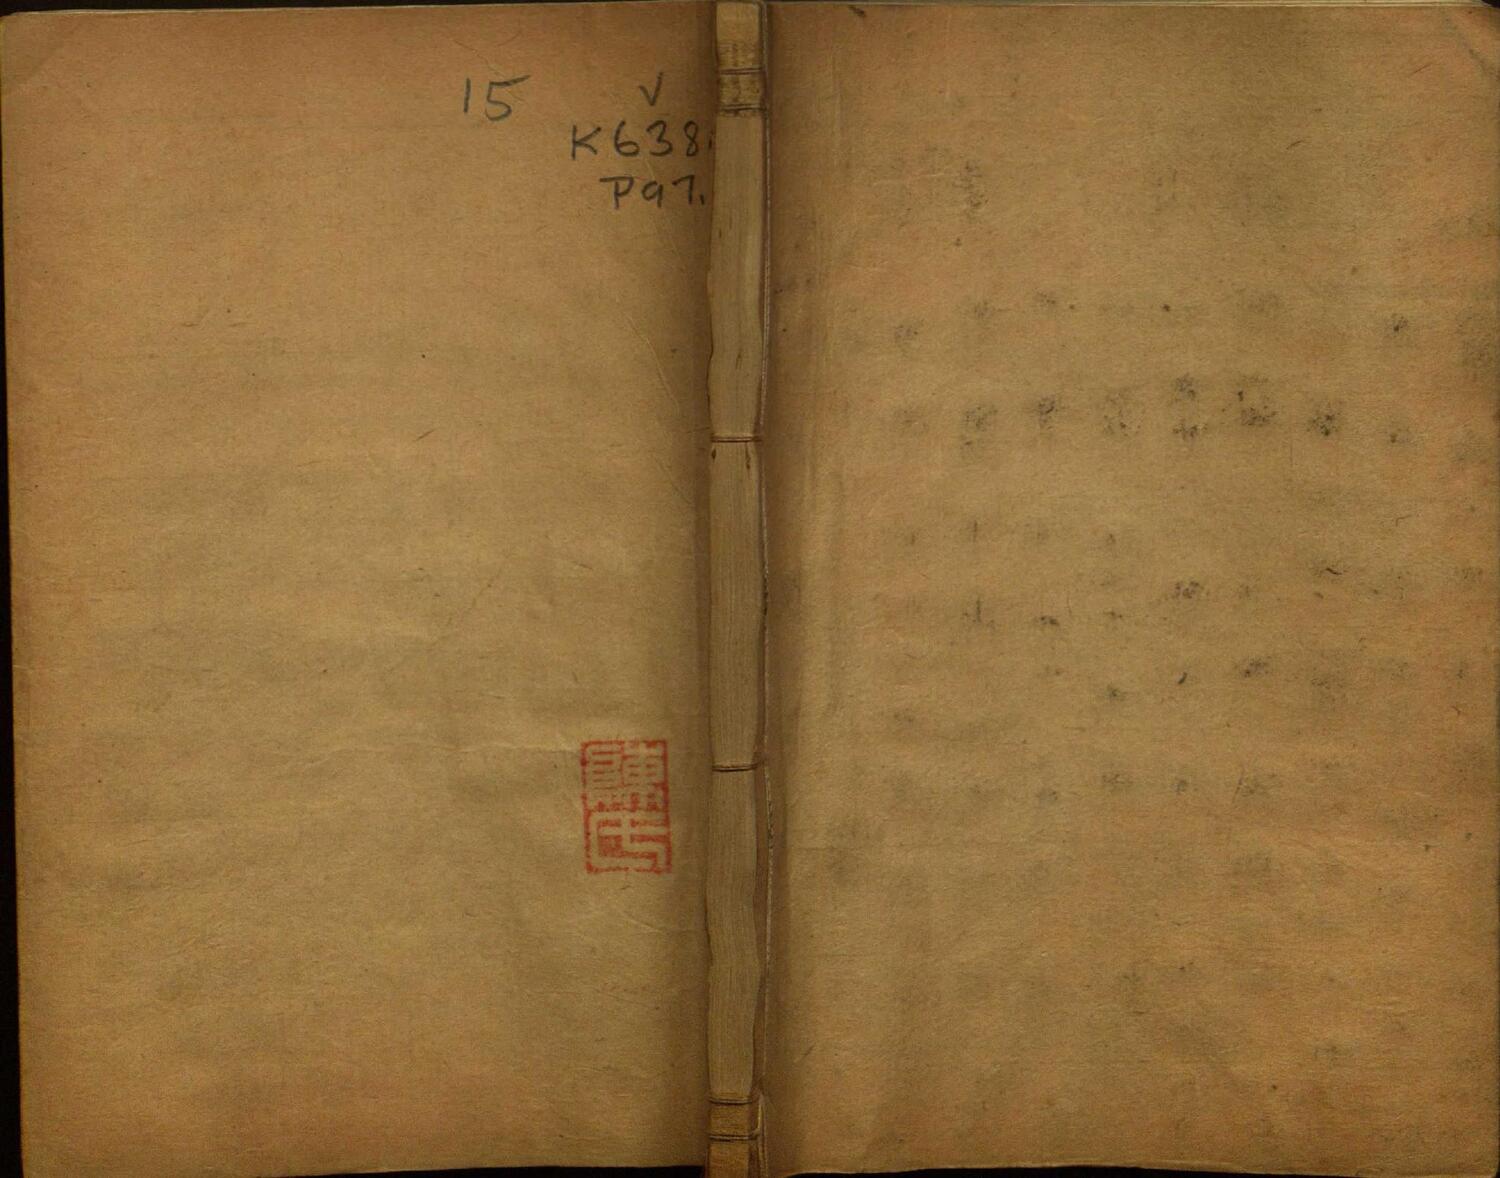 15 V
K638.
P97.
陳氏